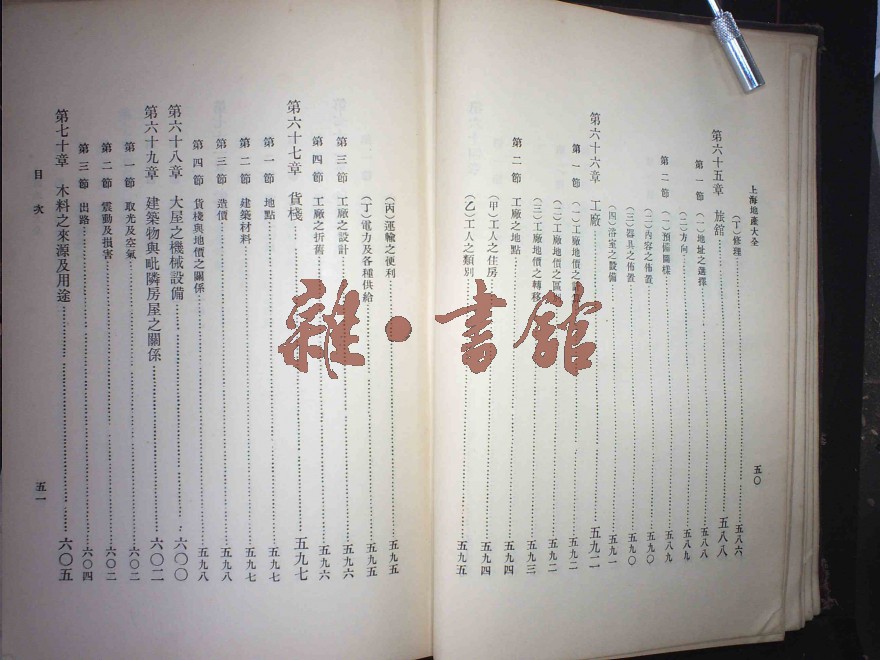 上海地產大全
(丁)修理 五八六
第六十五章 旅舘 五八八
第一節 (一)地址之選擇 五八八
(二)方向 五八九
第二節 (一)預備圖樣 五八九
(二)內容之佈置 五九〇
(三)器具之佈置 五九〇
(四)浴室之設備 五九一
第六十六章 工廠 五九二
第一節 (一)工廠地價之 五九二
(二)工廠地價之區 五九二
(三)工廠地價之轉移 五九三
第二節 工廠之地點 五九四
(甲)工人之住房 五九四
(乙)工人之類別 五九五
五〇
(丙)運輸之便利 五九五
(丁)電力及各種供給 五九五
第三節 工廠之設計 五九六
第四節 工廠之折舊 五九六
第六十七章 貨棧 五九七
第一節 地點 五九七
第二節 建築材料 五九七
第三節 造價 五九八
第四節 貨棧與地價之關係 五九八
第六十八章 大屋之機械設備 六〇〇
第六十九章 建築物與毗隣房屋之關係 六〇二
第一節 取光及空氣 六〇二
第二節 震動及損害 六〇二
第三節 出路 六〇四
第七十章 木料之來源及用途 六〇五
目次
五一
雜·書館